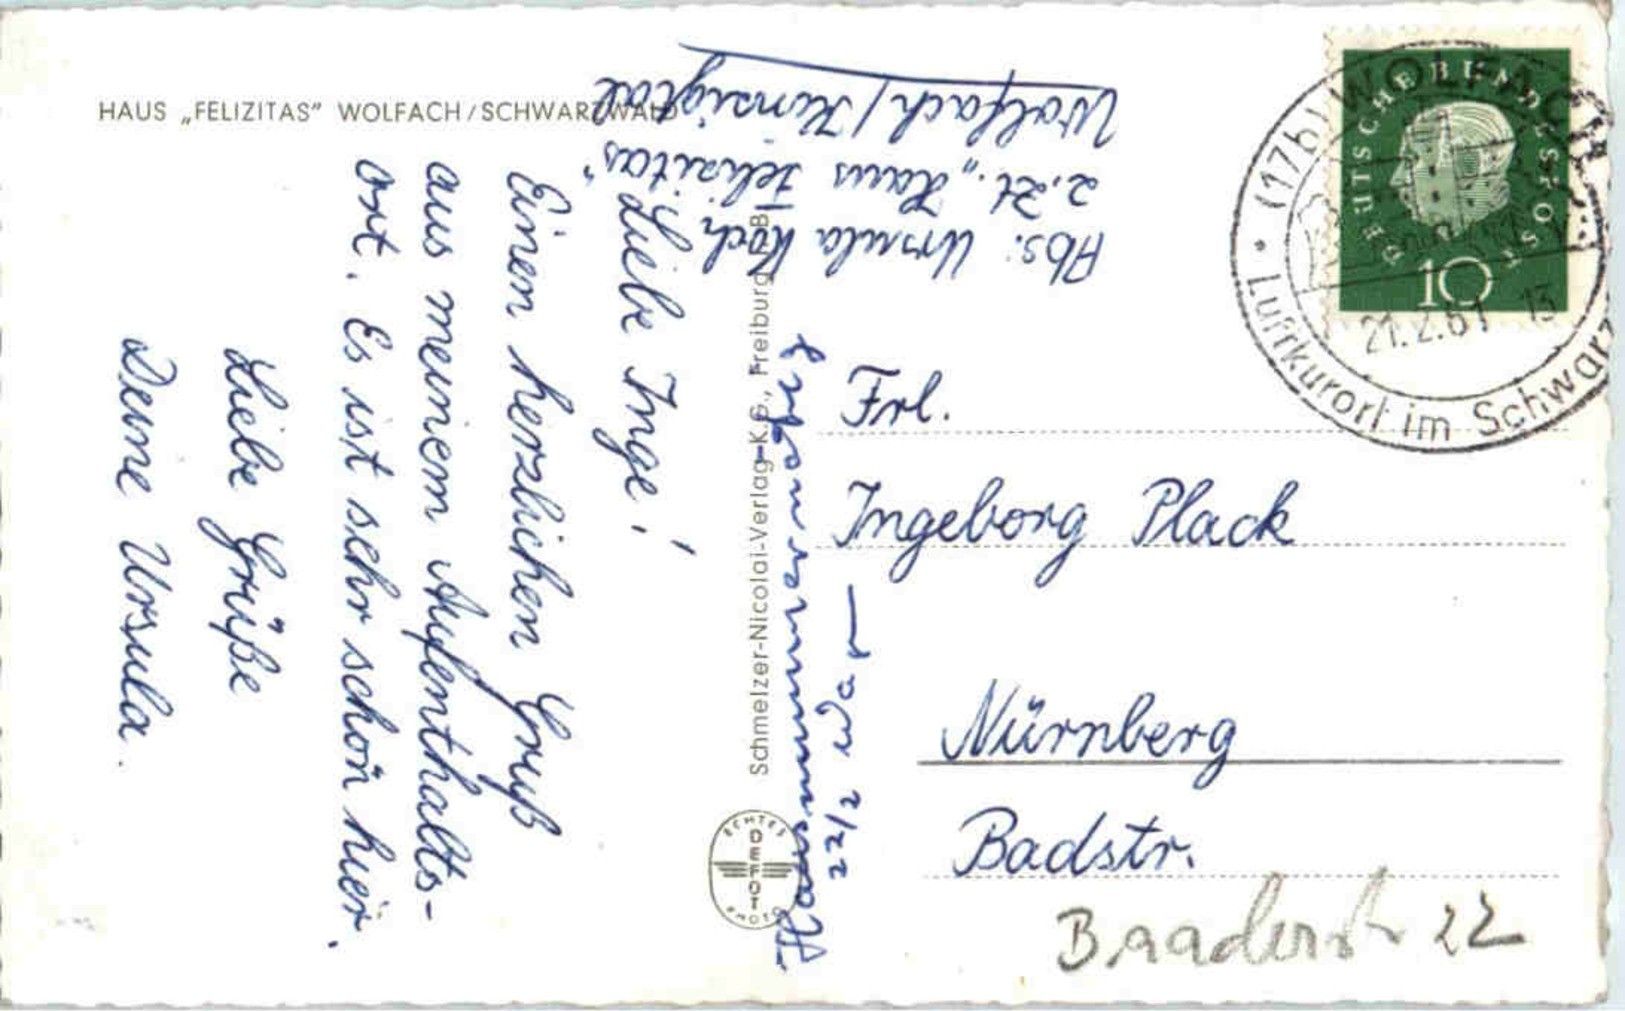 HAUS „FELIZITAS" WOLFACH/SCHWARZWALD
Abs: Ursula Koch
z.Zt. „Haus Felizitas"
Wolfach / Kinzigtal
Liebe Inge!
Einen herzlichen Gruß
aus meinem Aufenthalts-
ort. Es ist sehr schön hier.
Liebe Grüße
Deine Ursula.
Schmelzer-Nicolai-Verlag-K.G., Freiburg
ECHTES
DEFOT
PHOTO
22/2
DEUTSCHE BUNDESPOST
10
(17b) WOLFACH
21.2.61 13
Luftkurort im Schwarz
Frl.
Ingeborg Plack
Nürnberg
Badstr.
Baaderstr 22